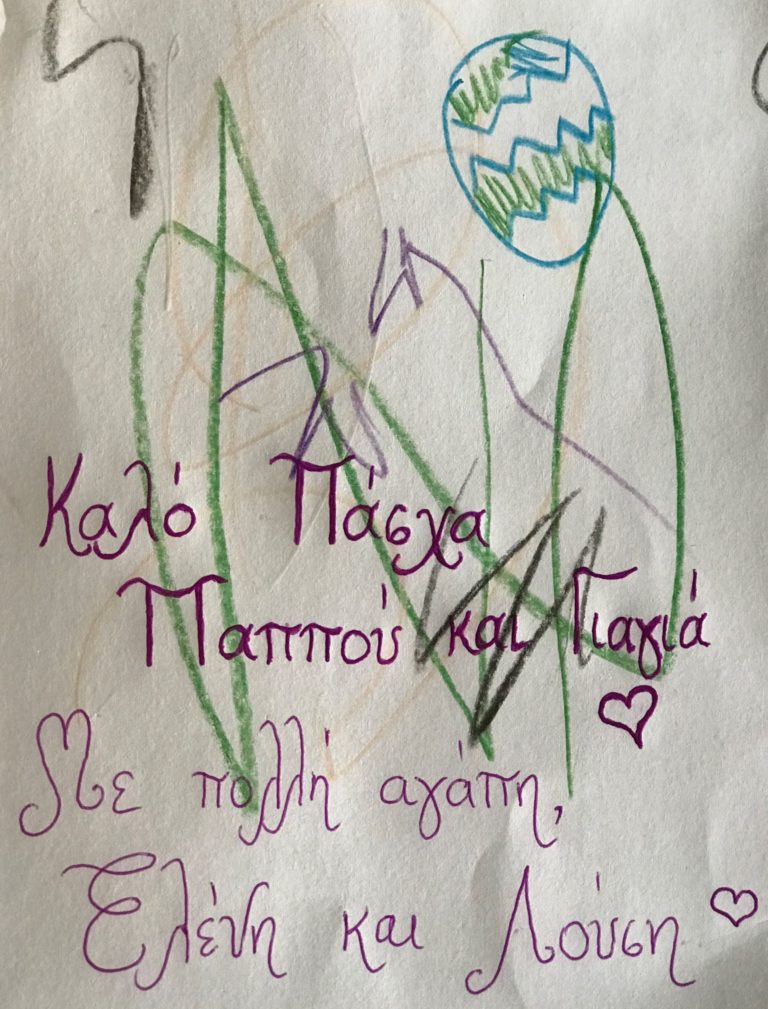 Καλό Πάσχα
Παππού και Γιαγιά
Με πολλή αγάπη,
Ελένη και Λούση